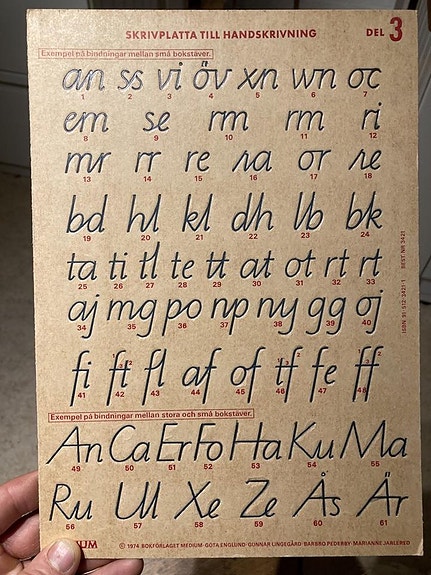 SKRIVPLATTA TILL HANDSKRIVNING DEL 3
Exempel på bindningar mellan små bokstäver.
an ss vi öv xn wn oc
1 2 3 4 5 6 7
em se rm rm ri
8 9 10 11 12
mr rr re ra or re
13 14 15 16 17 18
bd hl kl dh lb bk
19 20 21 22 23 24
ta ti tl te tt at ot rt rt
25 26 27 28 29 30 31 32 33
aj mg po np ny gg oj
34 35 36 37 38 39 40
fi ft fl af of tf fe ff
41 42 43 44 45 46 47 48
Exempel på bindningar mellan stora och små bokstäver.
An Ca Er Fo Ha Ku Ma
49 50 51 52 53 54 55
Ru Ul Xe Ze Ås Är
56 57 58 59 60 61
© 1974 BOKFÖRLAGET MEDIUM · GÖTA ENGLUND · GUNNAR LINGEGÅRD · BARBRO PEDERBY · MARIANNE JARLERED
BEST. NR 3421